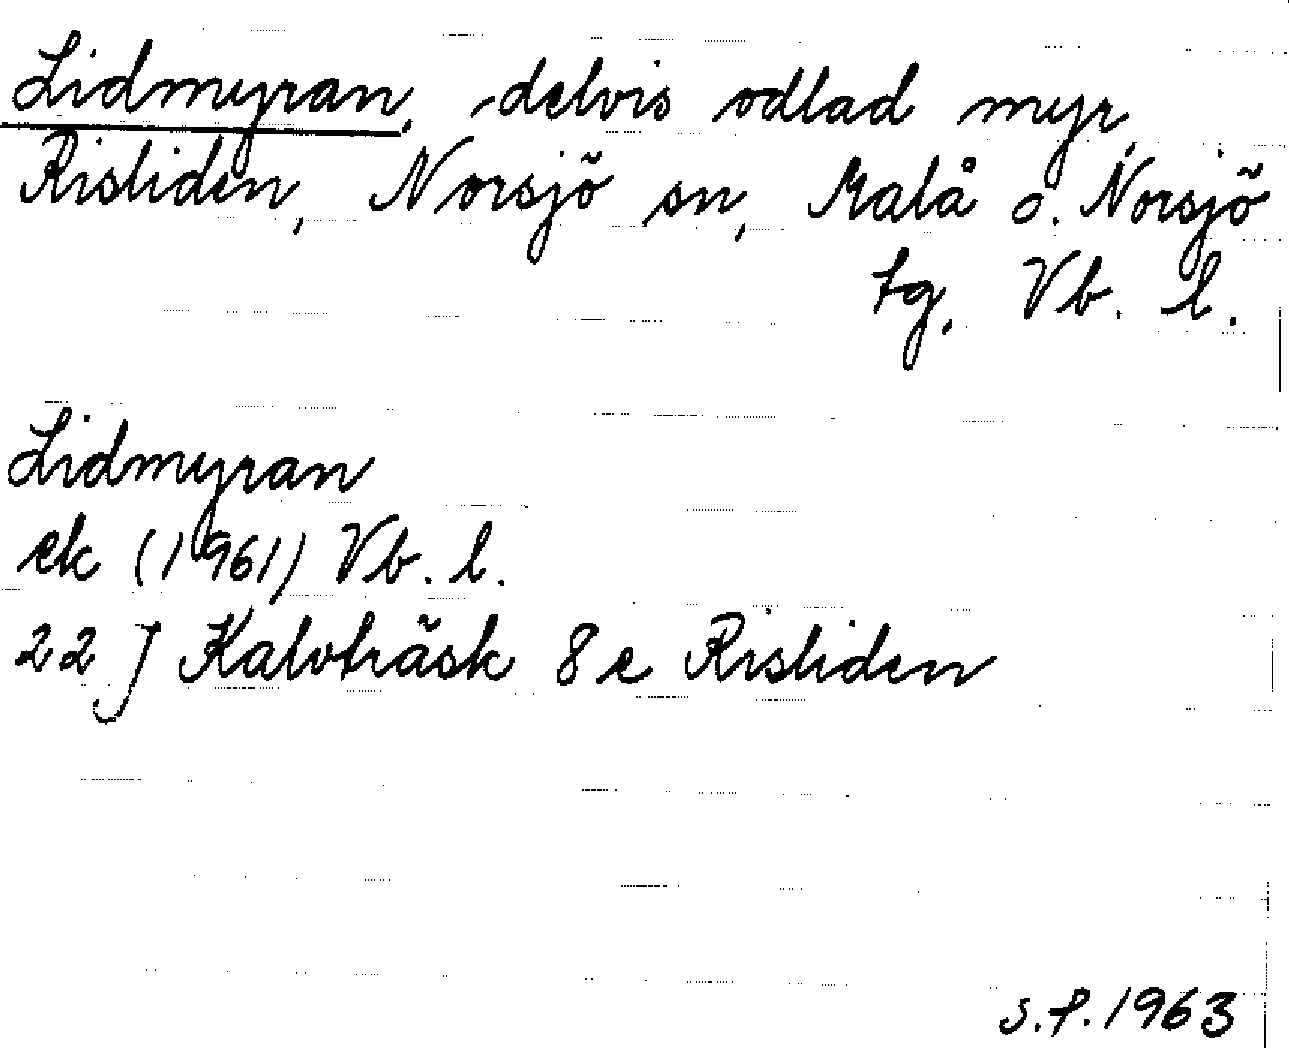 Lidmyran, delvis odlad myr,
Risliden, Norsjö sn, Malå o. Norsjö
tg, Vb. l.
Lidmyran
ek (1961) Vb. l.
22 J Kalvträsk 8e Risliden
s.f. 1963